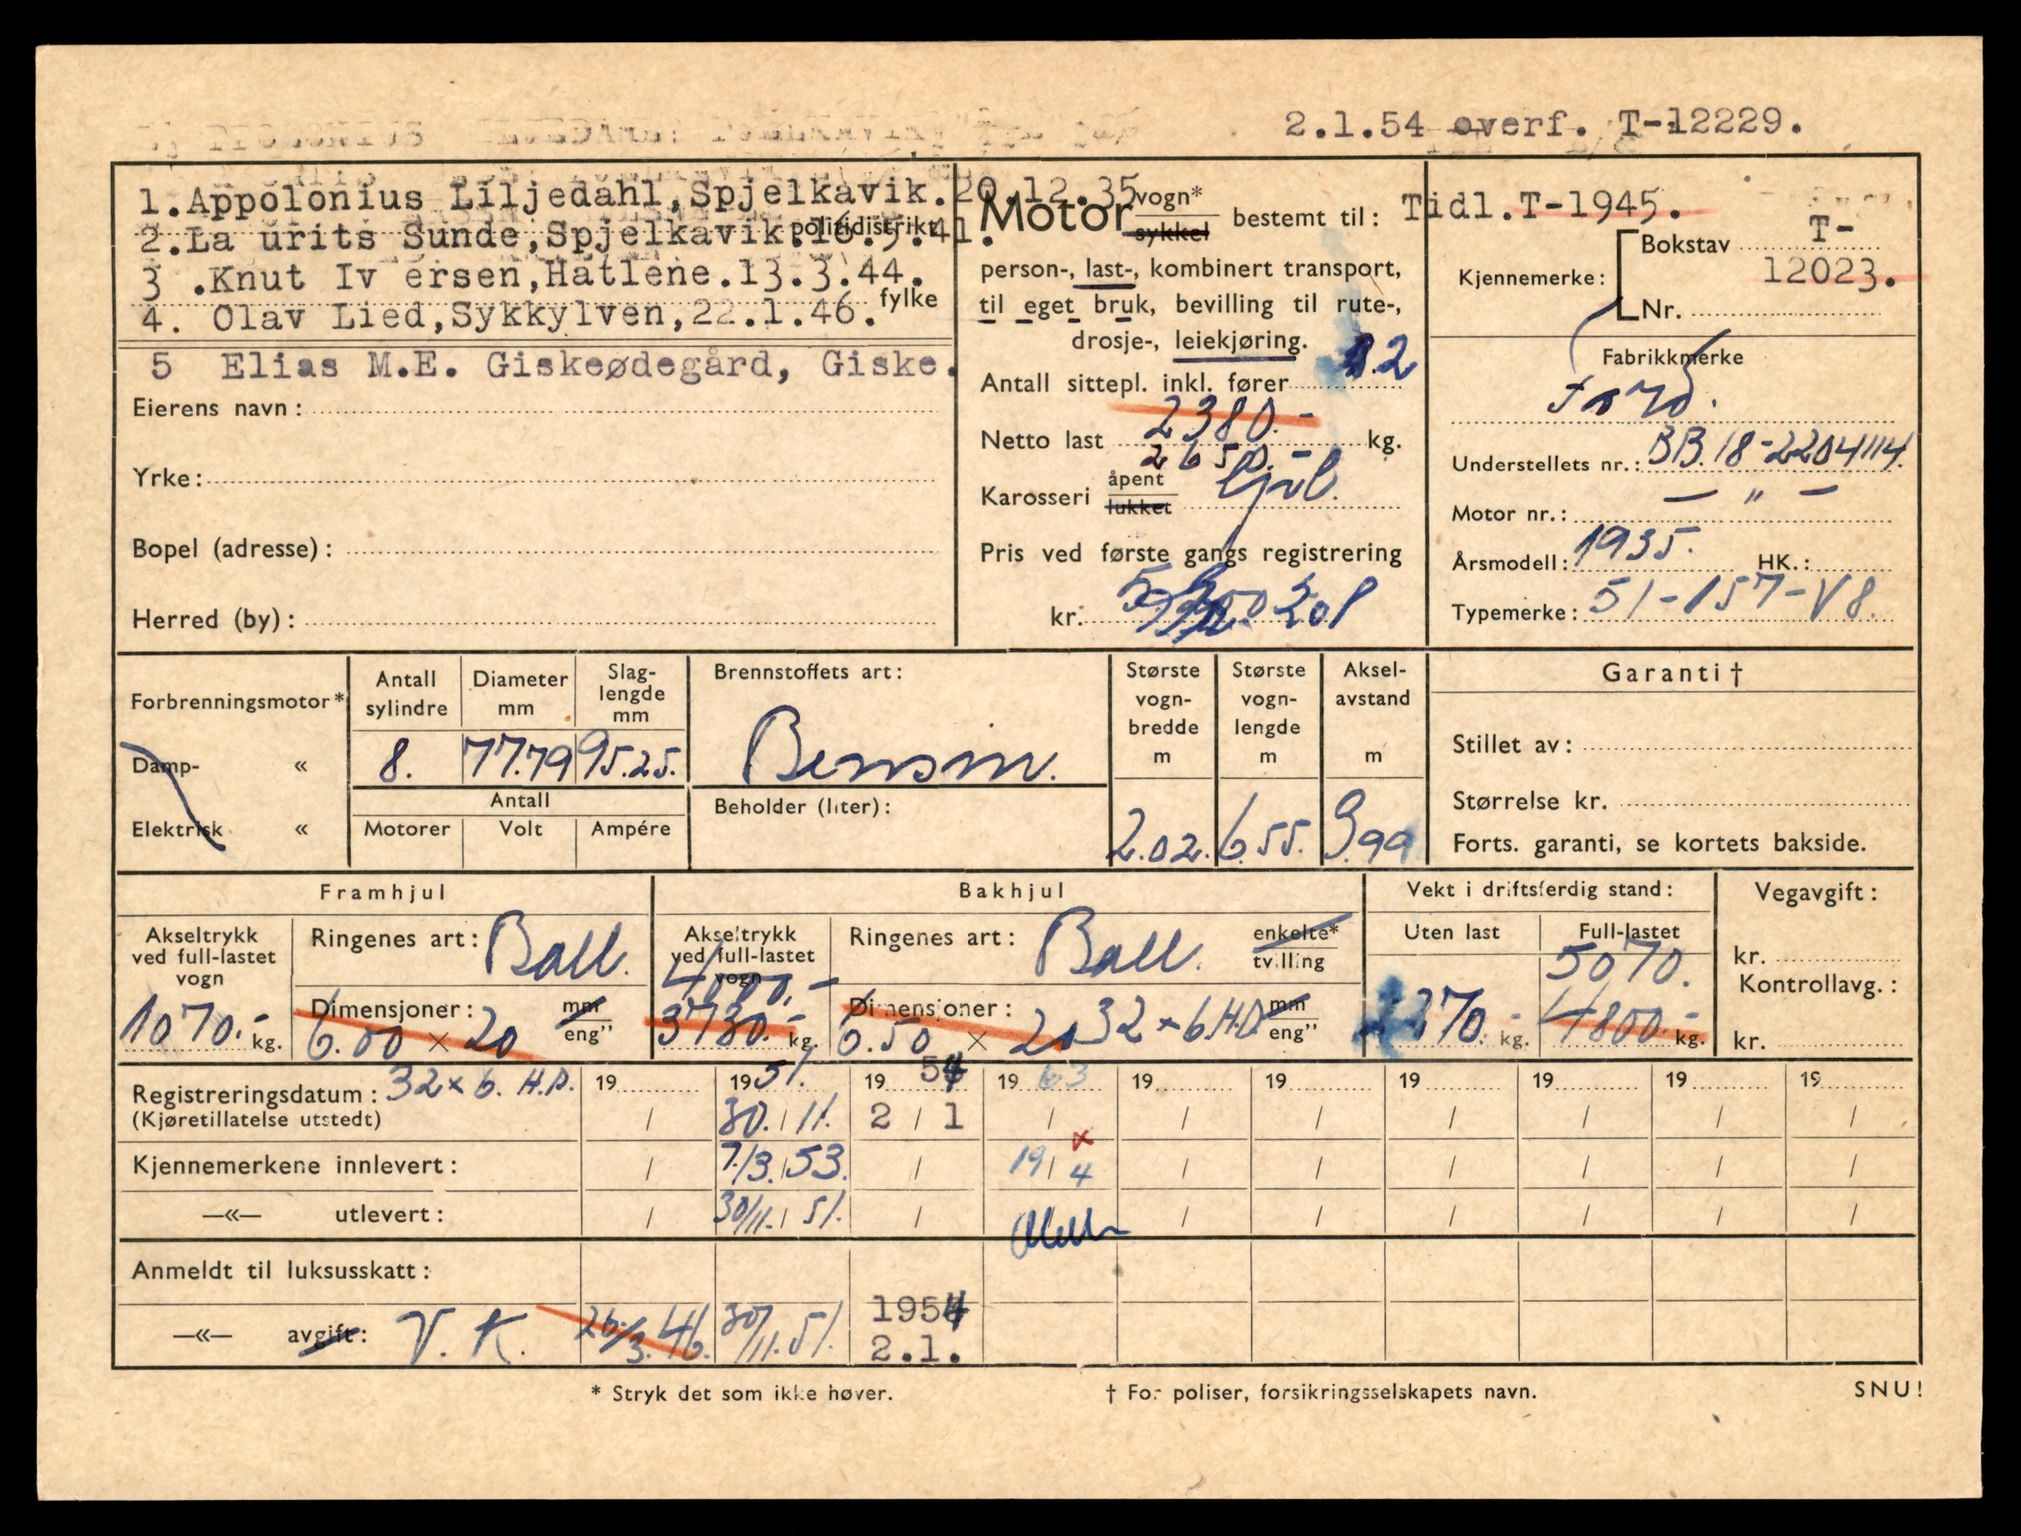 2.1.54 overf. T-12229.
1.Appolonius Liljedahl,Spjelkavik.20.12.35
2.La urits Sunde,Spjelkavik.16.9.41.
politidistrikt
3 .Knut Iv ersen,Hatlene.13.3.44.
4. Olav Lied,Sykkylven,22.1.46.
fylke
5 Elias M.E. Giskeødegård, Giske.
Eierens navn:
Yrke:
Bopel (adresse):
Herred (by):
Motor vogn* sykkel bestemt til:
person-, last-, kombinert transport,
til eget bruk, bevilling til rute-,
drosje-, leiekjøring.
Antall sittepl. inkl. fører 2
Netto last 2380.- kg.
2650.-
Karosseri åpent lukket
Pris ved første gangs registrering
kr.
Tidl.T-1945.
Kjennemerke: Bokstav T-
12023.
Nr.
Fabrikkmerke
Ford.
Understellets nr.: BB.18-2204114.
Motor nr.: — " —
Årsmodell: 1935. HK.:
Typemerke: 51-157-V8.
Forbrenningsmotor*
Damp- «
Elektrisk «
Antall sylindre
Diameter mm
Slag-lengde mm
8. 77.79 95.25.
Antall
Motorer Volt Ampére
Brennstoffets art:
Bensin.
Beholder (liter):
Største vogn-bredde m
Største vogn-lengde m
Aksel-avstand m
2.02. 6.55. 3.99
Garanti †
Stillet av:
Størrelse kr.
Forts. garanti, se kortets bakside.
Framhjul
Akseltrykk ved full-lastet vogn
1070.- kg.
Ringenes art: Ball.
Dimensjoner: mm eng”
6.00 × 20
Bakhjul
Akseltrykk ved full-lastet vogn
4000.-
3730.- kg.
Ringenes art: Ball. enkelte* tvilling
Dimensjoner: mm eng”
6.50 × 20 32 × 6 H.D.
Vekt i driftsferdig stand:
Uten last Full-lastet
5070.
370.- kg. 4800.- kg.
Vegavgift:
kr.
Kontrollavg.:
kr.
Registreringsdatum: 32 × 6. H.D. 19 1951. 1954 1963 19 19 19 19 19 19
(Kjøretillatelse utstedt) / 30./11. 2/1 / / / / / / /
Kjennemerkene innlevert: / 7./3.53. / 19/4 x / / / / / /
—«— utlevert: / 30/11.51. / / / / / / /
Anmeldt til luksusskatt:
—«— avgift: V. K. 26./3.46. 30/11.51. 1954
2.1.
* Stryk det som ikke høver.
† For poliser, forsikringsselskapets navn.
SNU!